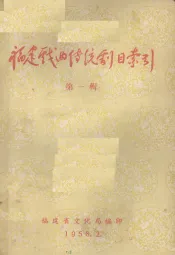 福建戏曲传统剧目索引
第一辑
福建省文化局编印
1958.2.